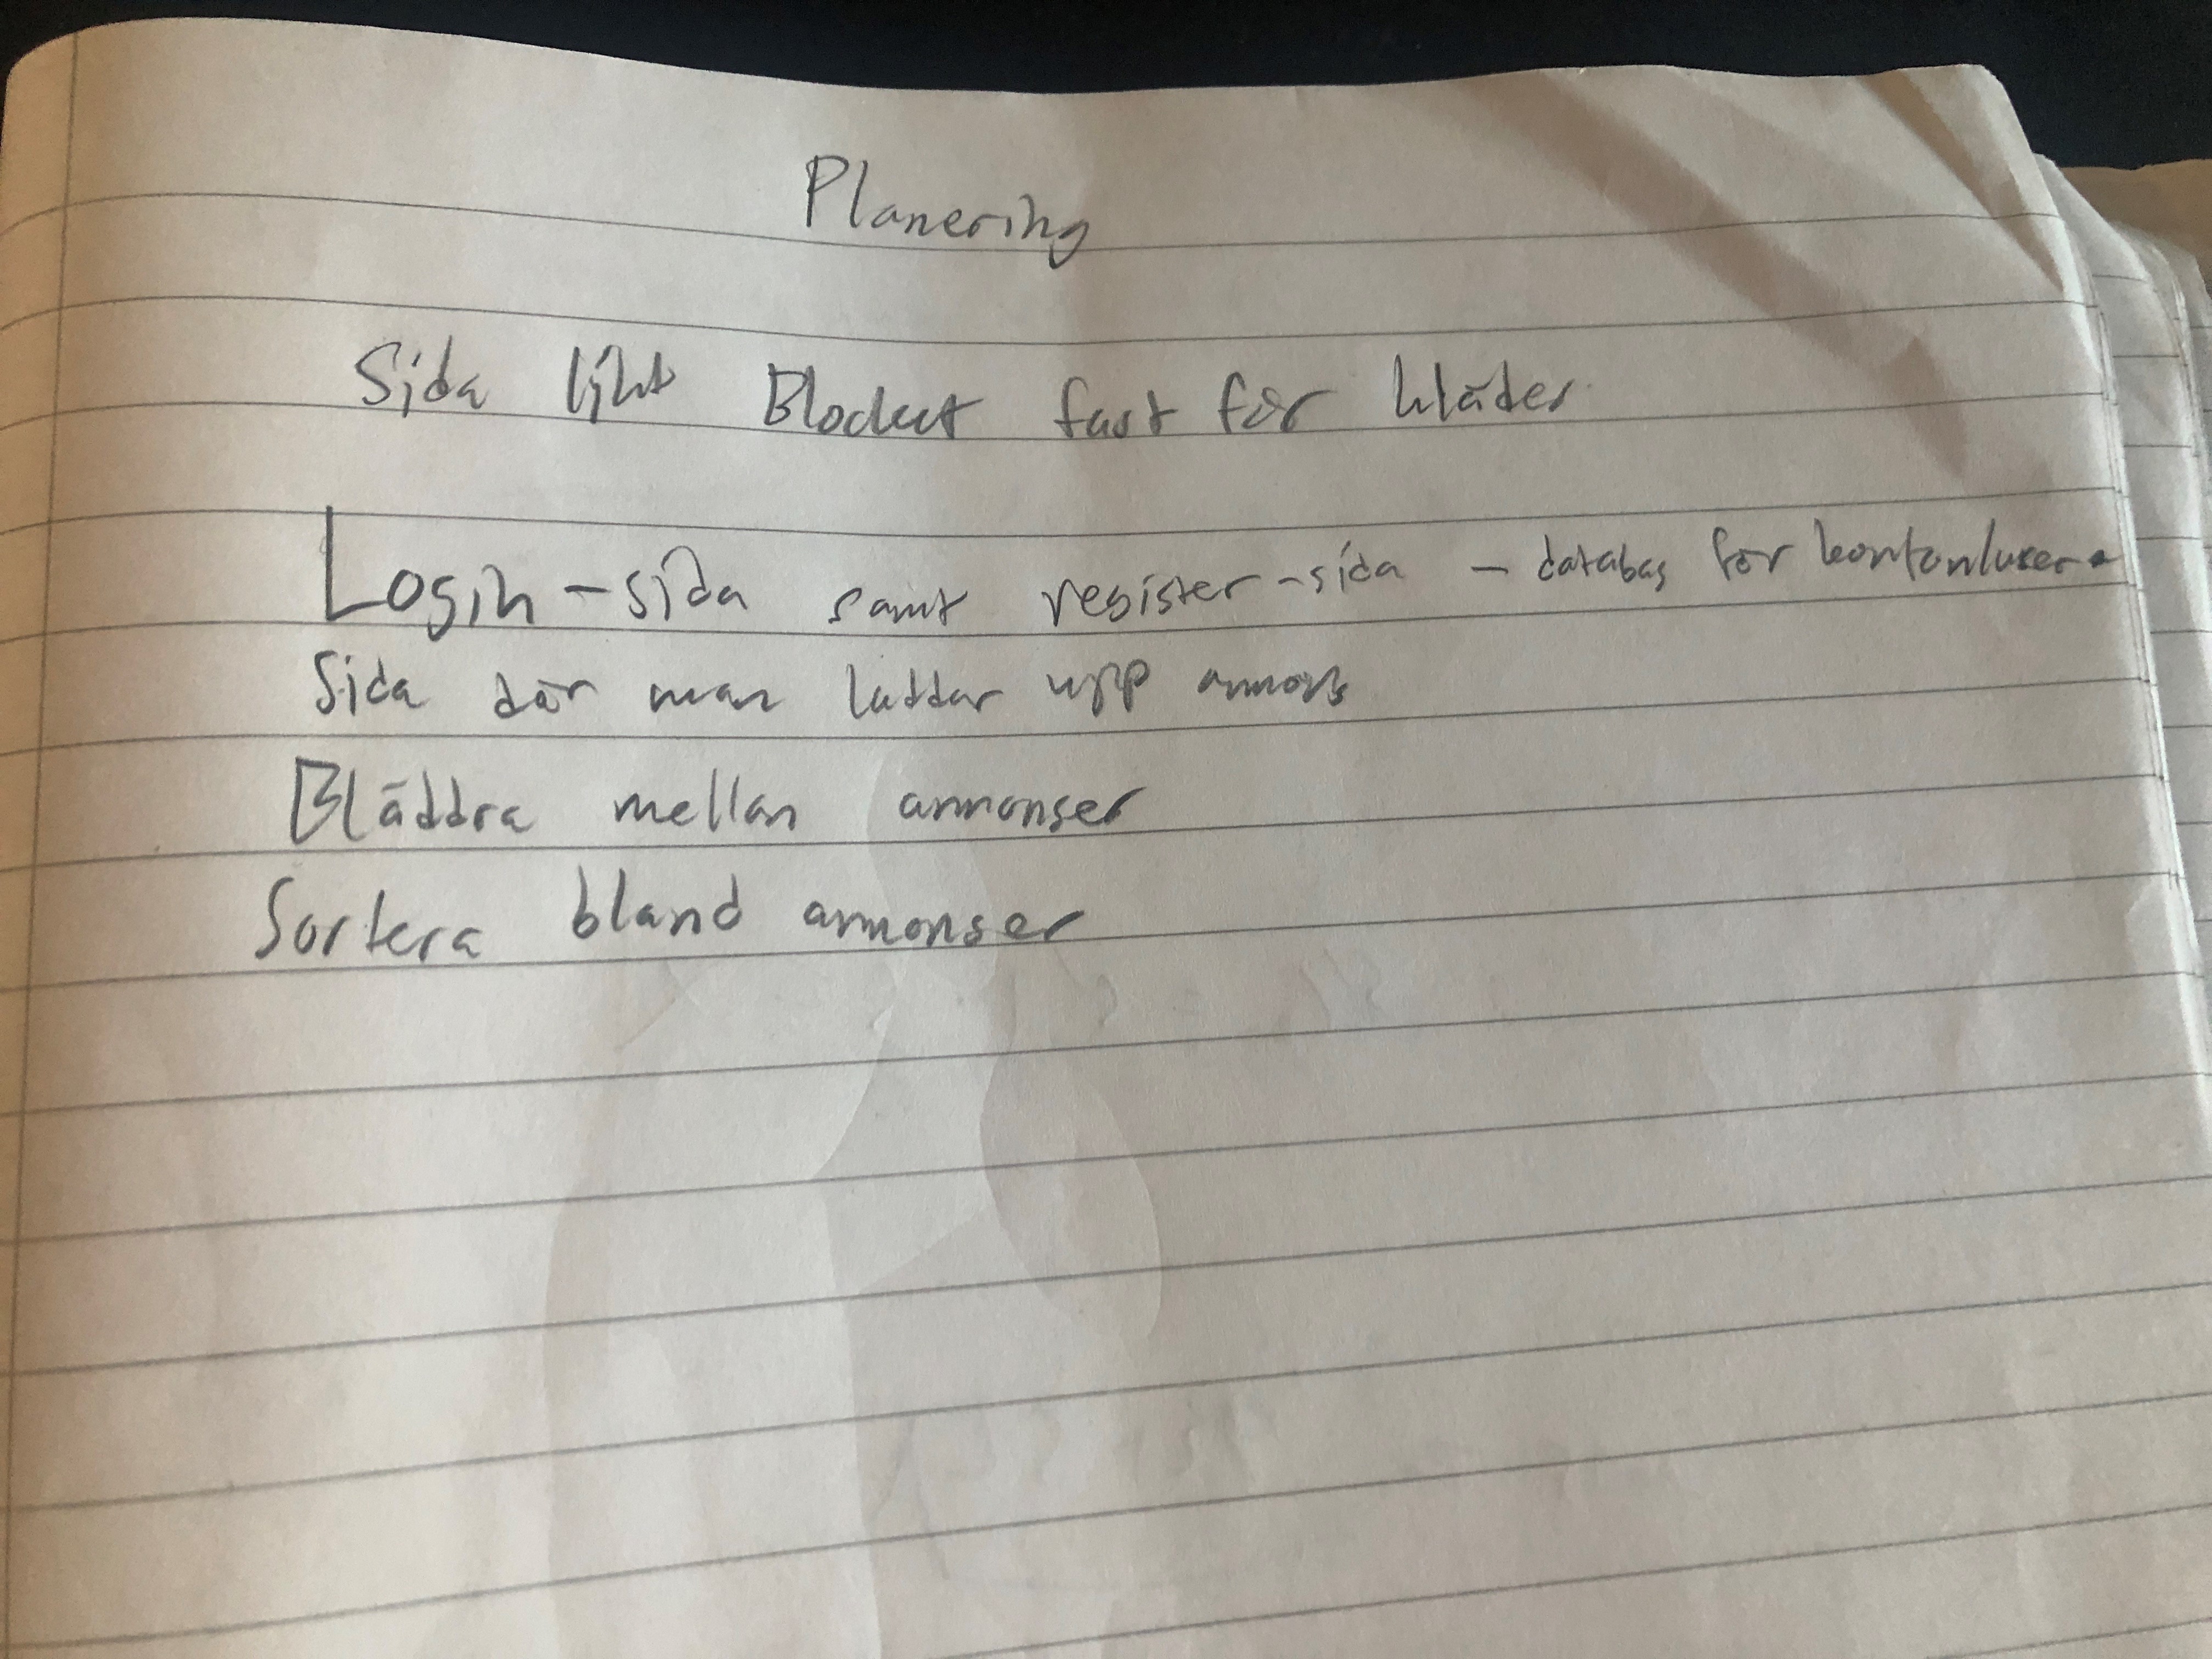 Planering
Sida likt Blocket fast för kläder
Login-sida samt register-sida - databas för
Sida där man laddar upp annons
Bläddra mellan annonser
Sortera bland annonser